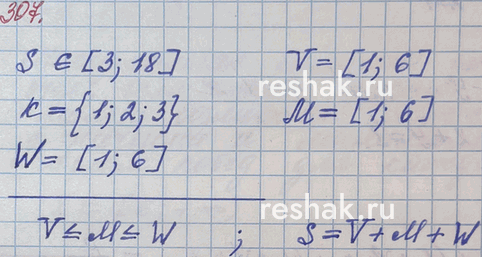 307.
S ∈ [3; 18]    V = [1; 6]
K = {1; 2; 3}    M = [1; 6]
W = [1; 6]
V ≤ M ≤ W ; S = V + M + W
reshak.ru
reshak.ru